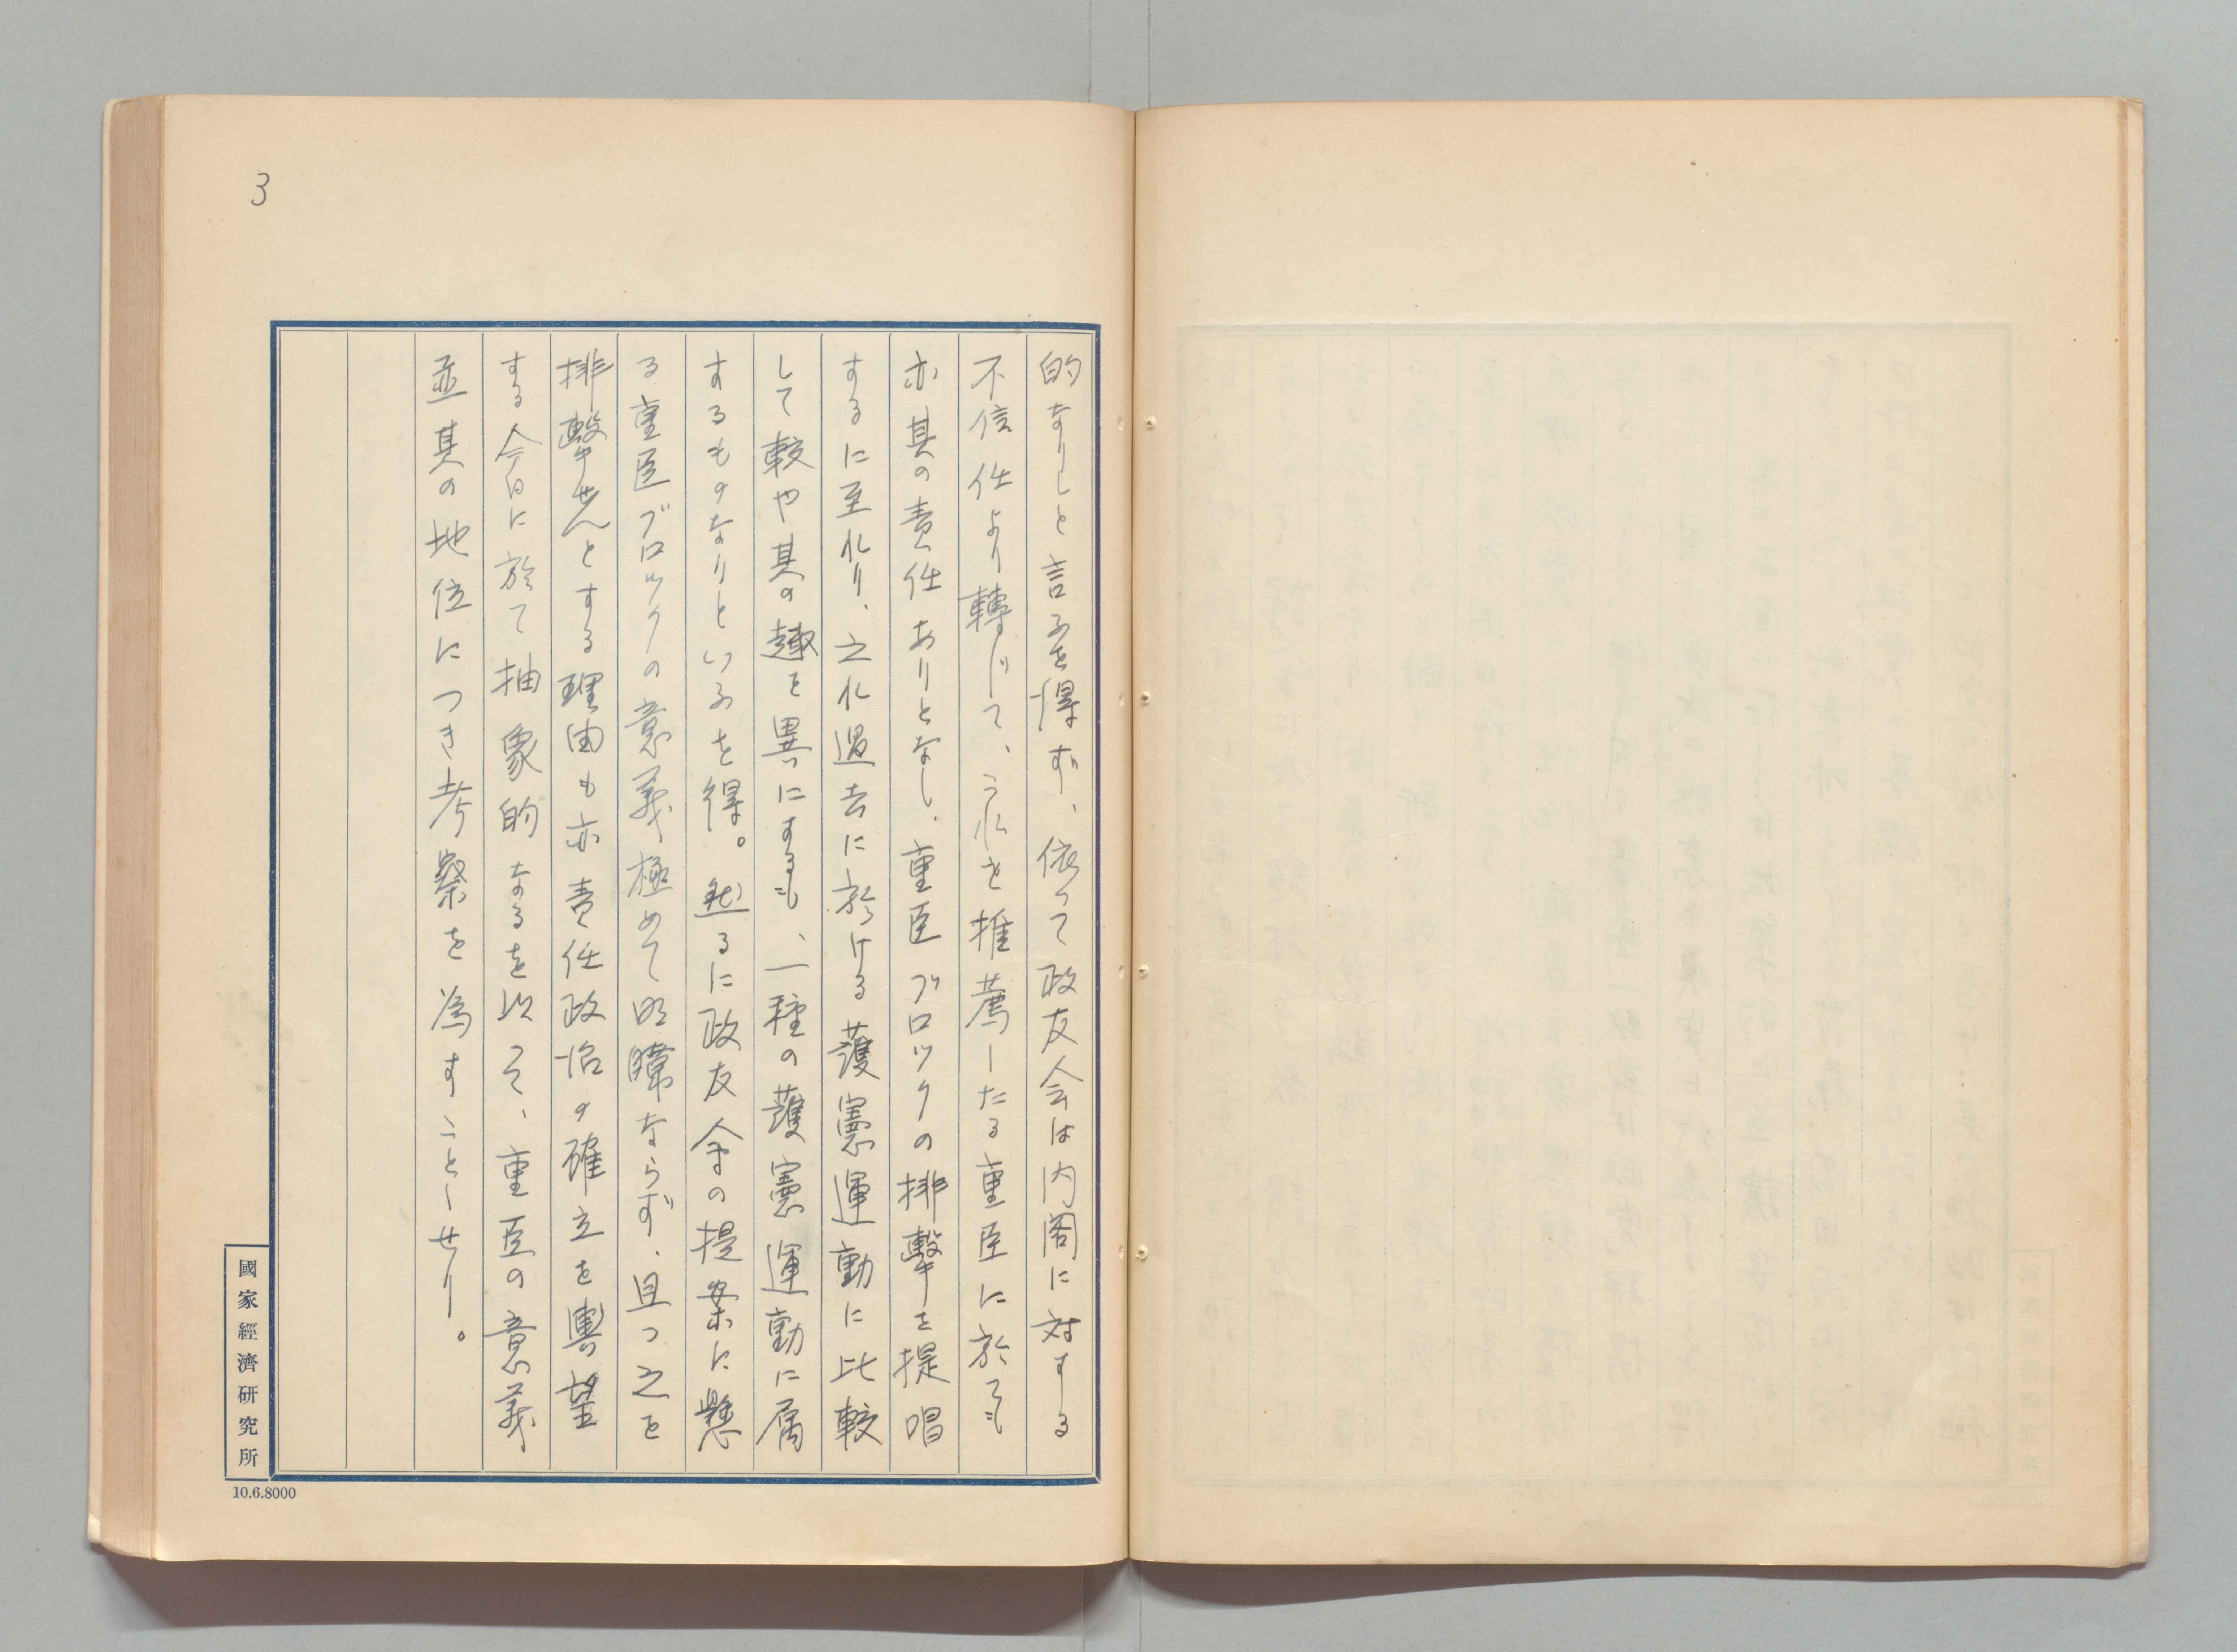 3
的なりしと言ふを得ず、依って政友会は内閣に対する
不信任より轉じて、これを推薦したる重臣に於ても
亦其の責任ありとなし、重臣ブロックの排擊を提唱
するに至れり、之れ過去に於ける護憲運動に比較
して較や其の趣を異にするも、一種の護憲運動に属
するものなりといふを得。然るに政友会の提案に懸
る重臣ブロックの意義極めて明瞭ならず、且つ之を
排擊せんとする理由も亦責任政治の確立を輿望
する今日に於て抽象的なるを以って、重臣の意義
並其の地位につき考察を為すことゝせり。
國家經濟研究所
10.6.8000